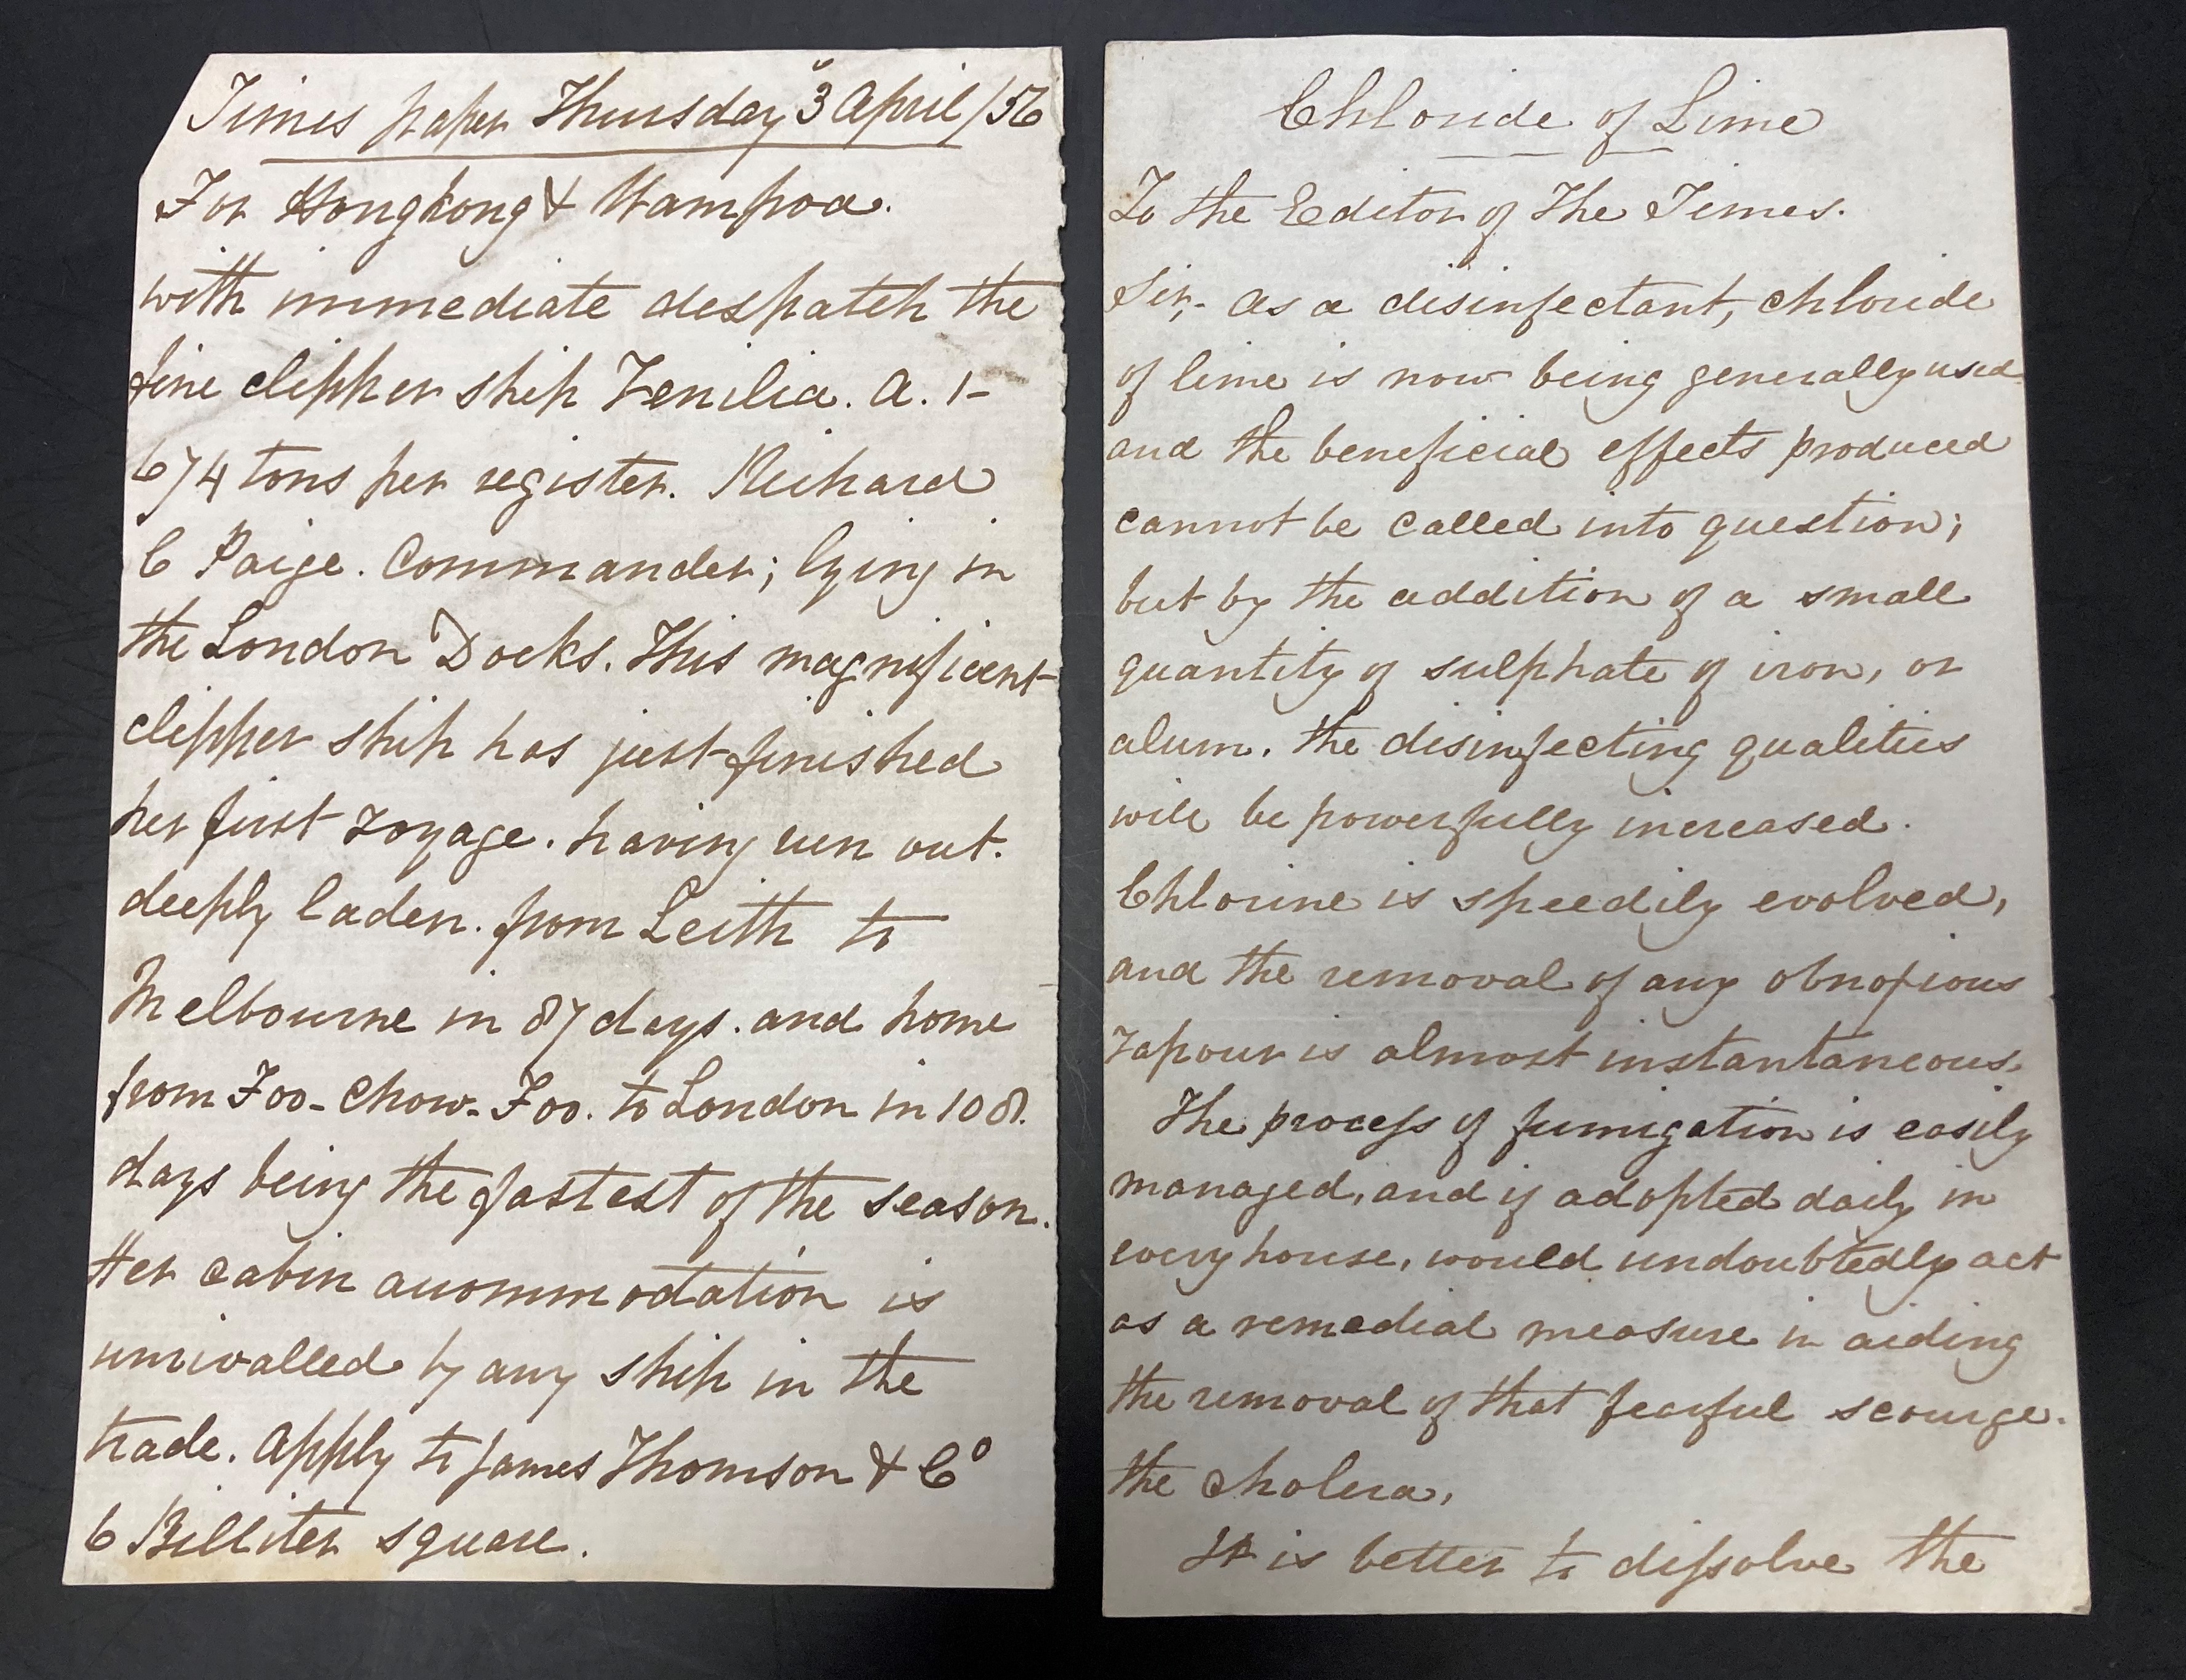 Times paper Thursday 3 April /56
For Hongkong & Wampoa.
with immediate despatch the
fine clipper ship Venilia. A. 1-
674 tons per register. Richard
C Paige. Commander; lying in
the London Docks. This magnificent
clipper ship has just finished
her first voyage. having run out.
deeply laden. from Leith to
Melbourne in 87 days. and home
from Foo-Chow-Foo. to London in 108.
days being the fastest of the season.
Her cabin accommodation is
unrivalled by any ship in the
trade. Apply to James Thomson & Co
6 Billiter square.
Chloride of Lime
To the Editor of The Times.
Sir,- As a disinfectant, chloride
of lime is now being generally used
and the beneficial effects produced
cannot be called into question;
but by the addition of a small
quantity of sulphate of iron, or
alum. the disinfecting qualities
will be powerfully increased.
Chlorine is speedily evolved,
and the removal of any obnoxious
vapour is almost instantaneous.
The process of fumigation is easily
managed, and if adopted daily in
every house, would undoubtedly act
as a remedial measure in aiding
the removal of that fearful scourge.
the cholera.
It is better to dissolve the